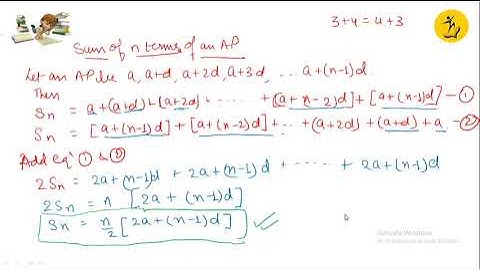 3+4 = 4+3
Sum of n terms of an AP
Let an AP be a, a+d, a+2d, a+3d, ... a+(n-1)d
Then
Sn = a+(a+d)+(a+2d)+ ..... +[a+(n-2)d]+[a+(n-1)d] — ①
Sn = [a+(n-1)d]+[a+(n-2)d]+ ... +(a+2d)+(a+d)+a — ②
Add eqⁿ ① & ②
2Sn = 2a+(n-1)d + 2a+(n-1)d + ..... + 2a+(n-1)d
2Sn = n [2a + (n-1)d]
Sn = n/2 [2a+(n-1)d] ✓✓
Activate Windows